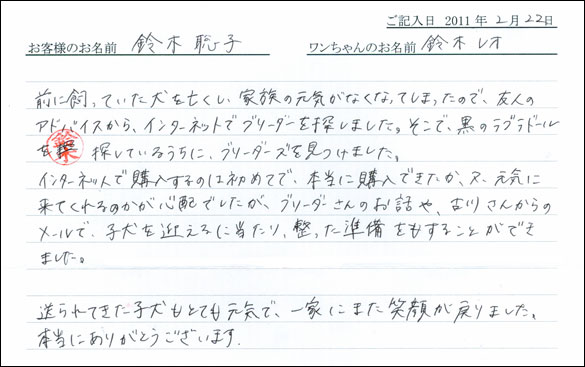 ご記入日 2011年2月22日
お客様のお名前 鈴木聡子 ワンちゃんのお名前 鈴木レオ
前に飼っていた犬を亡くし、家族の元気がなくなってしまったので、友人の
アドバイスから、インターネットでブリーダーを探しました。そこで、黒のラブラドール
を 探しているうちに、ブリーダーズを見つけました。
インターネットで購入するのは初めてで、本当に購入できたか、又、元気に
来てくれるのかが心配でしたが、ブリーダーさんのお話や、古川さんからの
メールで、子犬を迎えるに当たり、整った準備をもすることができ
ました。
送られてきた子犬もとても元気で、一家にまた笑顔が戻りました。
本当にありがとうございます.